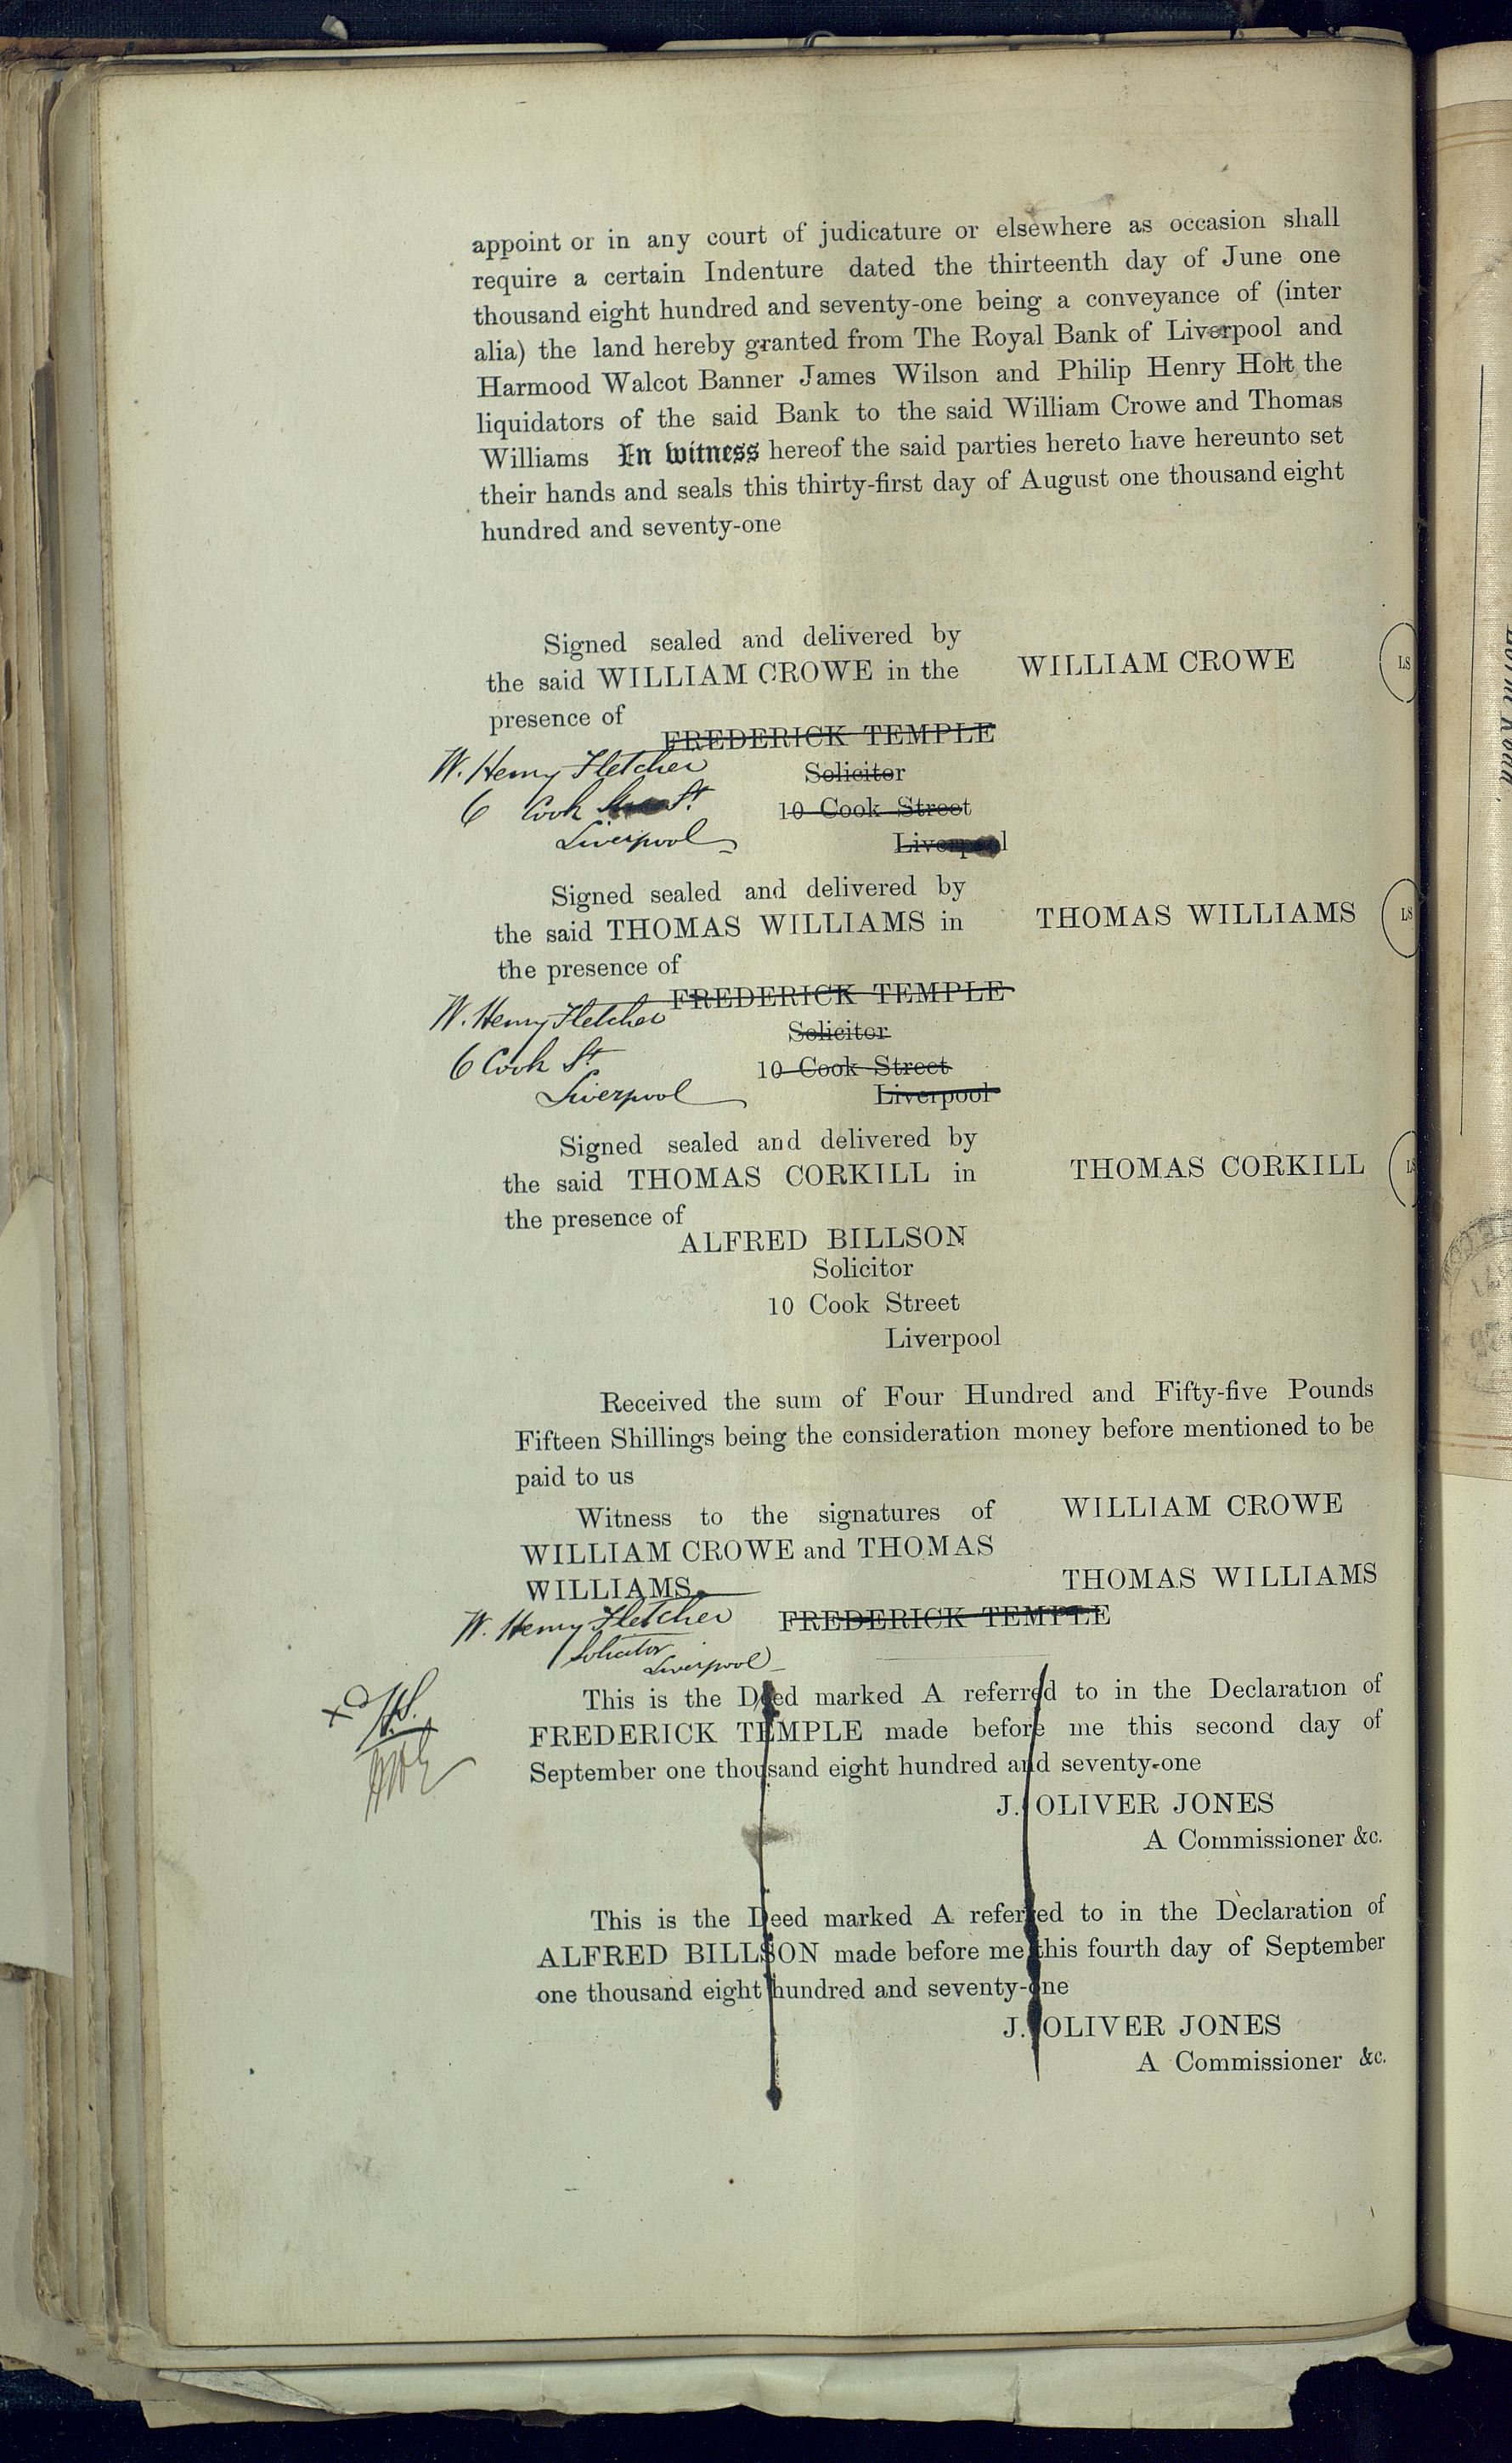 appoint or in any court of judicature or elsewhere as occasion shall
require a certain Indenture dated the thirteenth day of June one
thousand eight hundred and seventy-one being a conveyance of (inter
alia) the land hereby granted from The Royal Bank of Liverpool and
Harmood Walcot Banner James Wilson and Philip Henry Holt the
liquidators of the said Bank to the said William Crowe and Thomas
Williams In witness hereof the said parties hereto have hereunto set
their hands and seals this thirty-first day of August one thousand eight
hundred and seventy-one
Signed sealed and delivered by
the said WILLIAM CROWE in the WILLIAM CROWE LS
presence of
FREDERICK TEMPLE
W. Henry Fletcher Solicitor
6 Cook St 10 Cook Street
Liverpool Liverpool
Signed sealed and delivered by
the said THOMAS WILLIAMS in THOMAS WILLIAMS LS
the presence of
FREDERICK TEMPLE
W. Henry Fletcher Solicitor
6 Cook St 10 Cook Street
Liverpool Liverpool
Signed sealed and delivered by
the said THOMAS CORKILL in THOMAS CORKILL LS
the presence of
ALFRED BILLSON
Solicitor
10 Cook Street
Liverpool
Received the sum of Four Hundred and Fifty-five Pounds
Fifteen Shillings being the consideration money before mentioned to be
paid to us
Witness to the signatures of WILLIAM CROWE
WILLIAM CROWE and THOMAS
WILLIAMS THOMAS WILLIAMS
W. Henry Fletcher FREDERICK TEMPLE
Solicitor
Liverpool
This is the Deed marked A referred to in the Declaration of
FREDERICK TEMPLE made before me this second day of
September one thousand eight hundred and seventy-one
J. OLIVER JONES
A Commissioner &c.
This is the Deed marked A referred to in the Declaration of
ALFRED BILLSON made before me this fourth day of September
one thousand eight hundred and seventy-one
J. OLIVER JONES
A Commissioner &c.